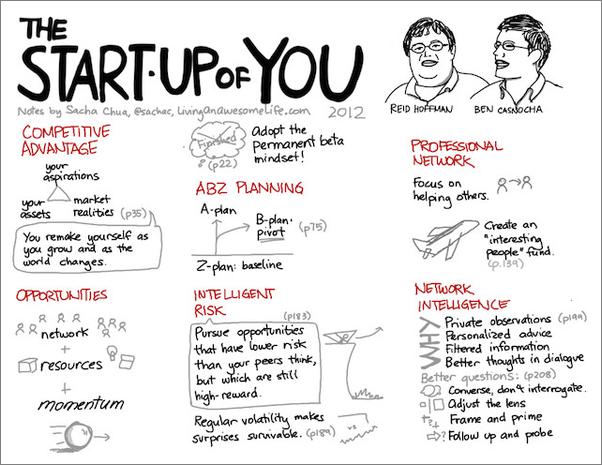 THE
START-UP OF YOU
Notes by Sacha Chua, @sachac, LivingAnAwesomeLife.com 2012
REID HOFFMAN
BEN CASNOCHA
COMPETITIVE
ADVANTAGE
your
aspirations
your
assets
market
realities (p35)
You remake yourself as
you grow and as the
world changes.
OPPORTUNITIES
network
+
resources
+
momentum
Finished
(p22)
Adopt the
permanent beta
mindset!
ABZ PLANNING
A-plan
B-plan:
pivot (p75)
Z-plan: baseline
INTELLIGENT
RISK
(p183)
Pursue opportunities
that have lower risk
than your peers think,
but which are still
high-reward.
Regular volatility makes
surprises survivable. (p189)
vs
PROFESSIONAL
NETWORK
Focus on
helping others.
Create an
"interesting
people" fund.
(p.139)
NETWORK
INTELLIGENCE
WHY
Private observations (p199)
Personalized advice
Filtered information
Better thoughts in dialogue
Better questions: (p208)
Converse, don't interrogate.
Adjust the lens
Frame and prime
? Follow up and probe